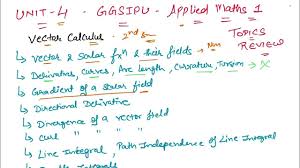 UNIT-4 - GGSIPU - Applied Maths 1
Vector Calculus - 2nd S
TOPICS
REVIEW
↳ Vector & Scalar fxn & their fields -
↳ Derivatives, Curves, Arc length, Curvature, Torsion → X
↳ Gradient of a scalar field
↳ Directional Derivative
↳ Divergence of a vector field
↳ Curl " " "
↳ Line Integral, Path Independence of Line Integral